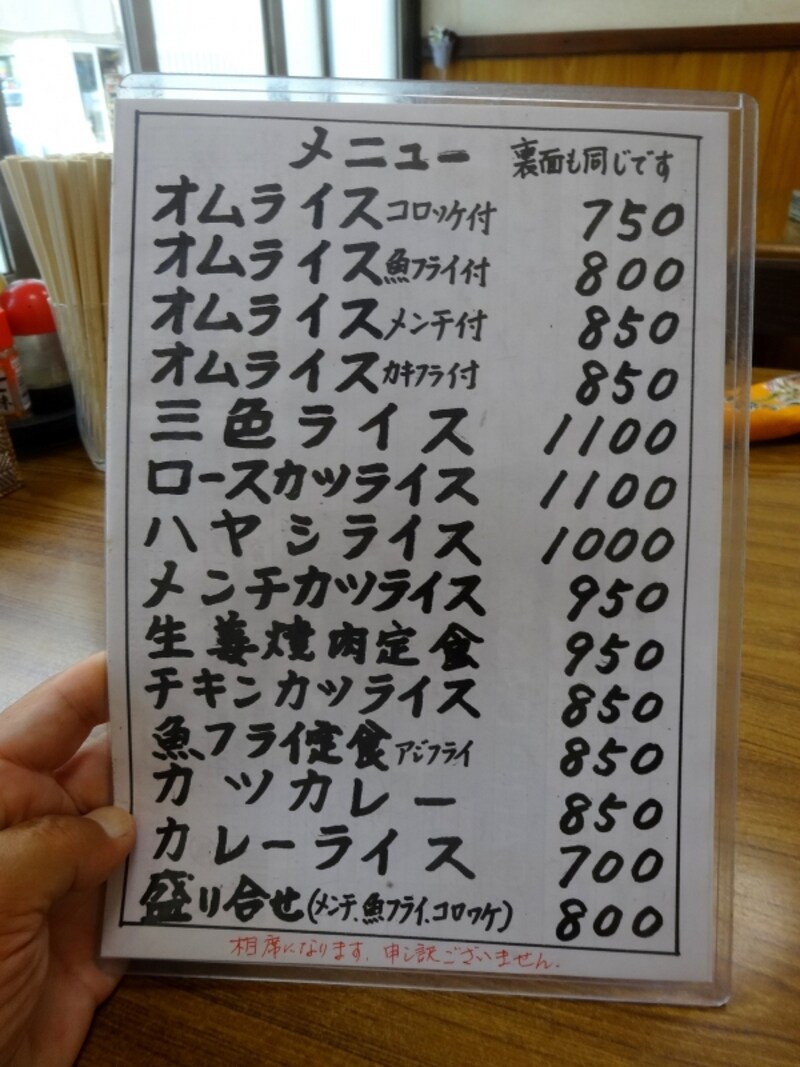 メニュー 裏面も同じです
オムライスコロッケ付 750
オムライス魚フライ付 800
オムライスメンチ付 850
オムライスカキフライ付 850
三色ライス 1100
ロースカツライス 1100
ハヤシライス 1000
メンチカツライス 950
生姜焼肉定食 950
チキンカツライス 850
魚フライ定食アジフライ 850
カツカレー 850
カレーライス 700
盛り合せ(メンチ.魚フライ.コロッケ) 800
相席になります.申し訳ございません.